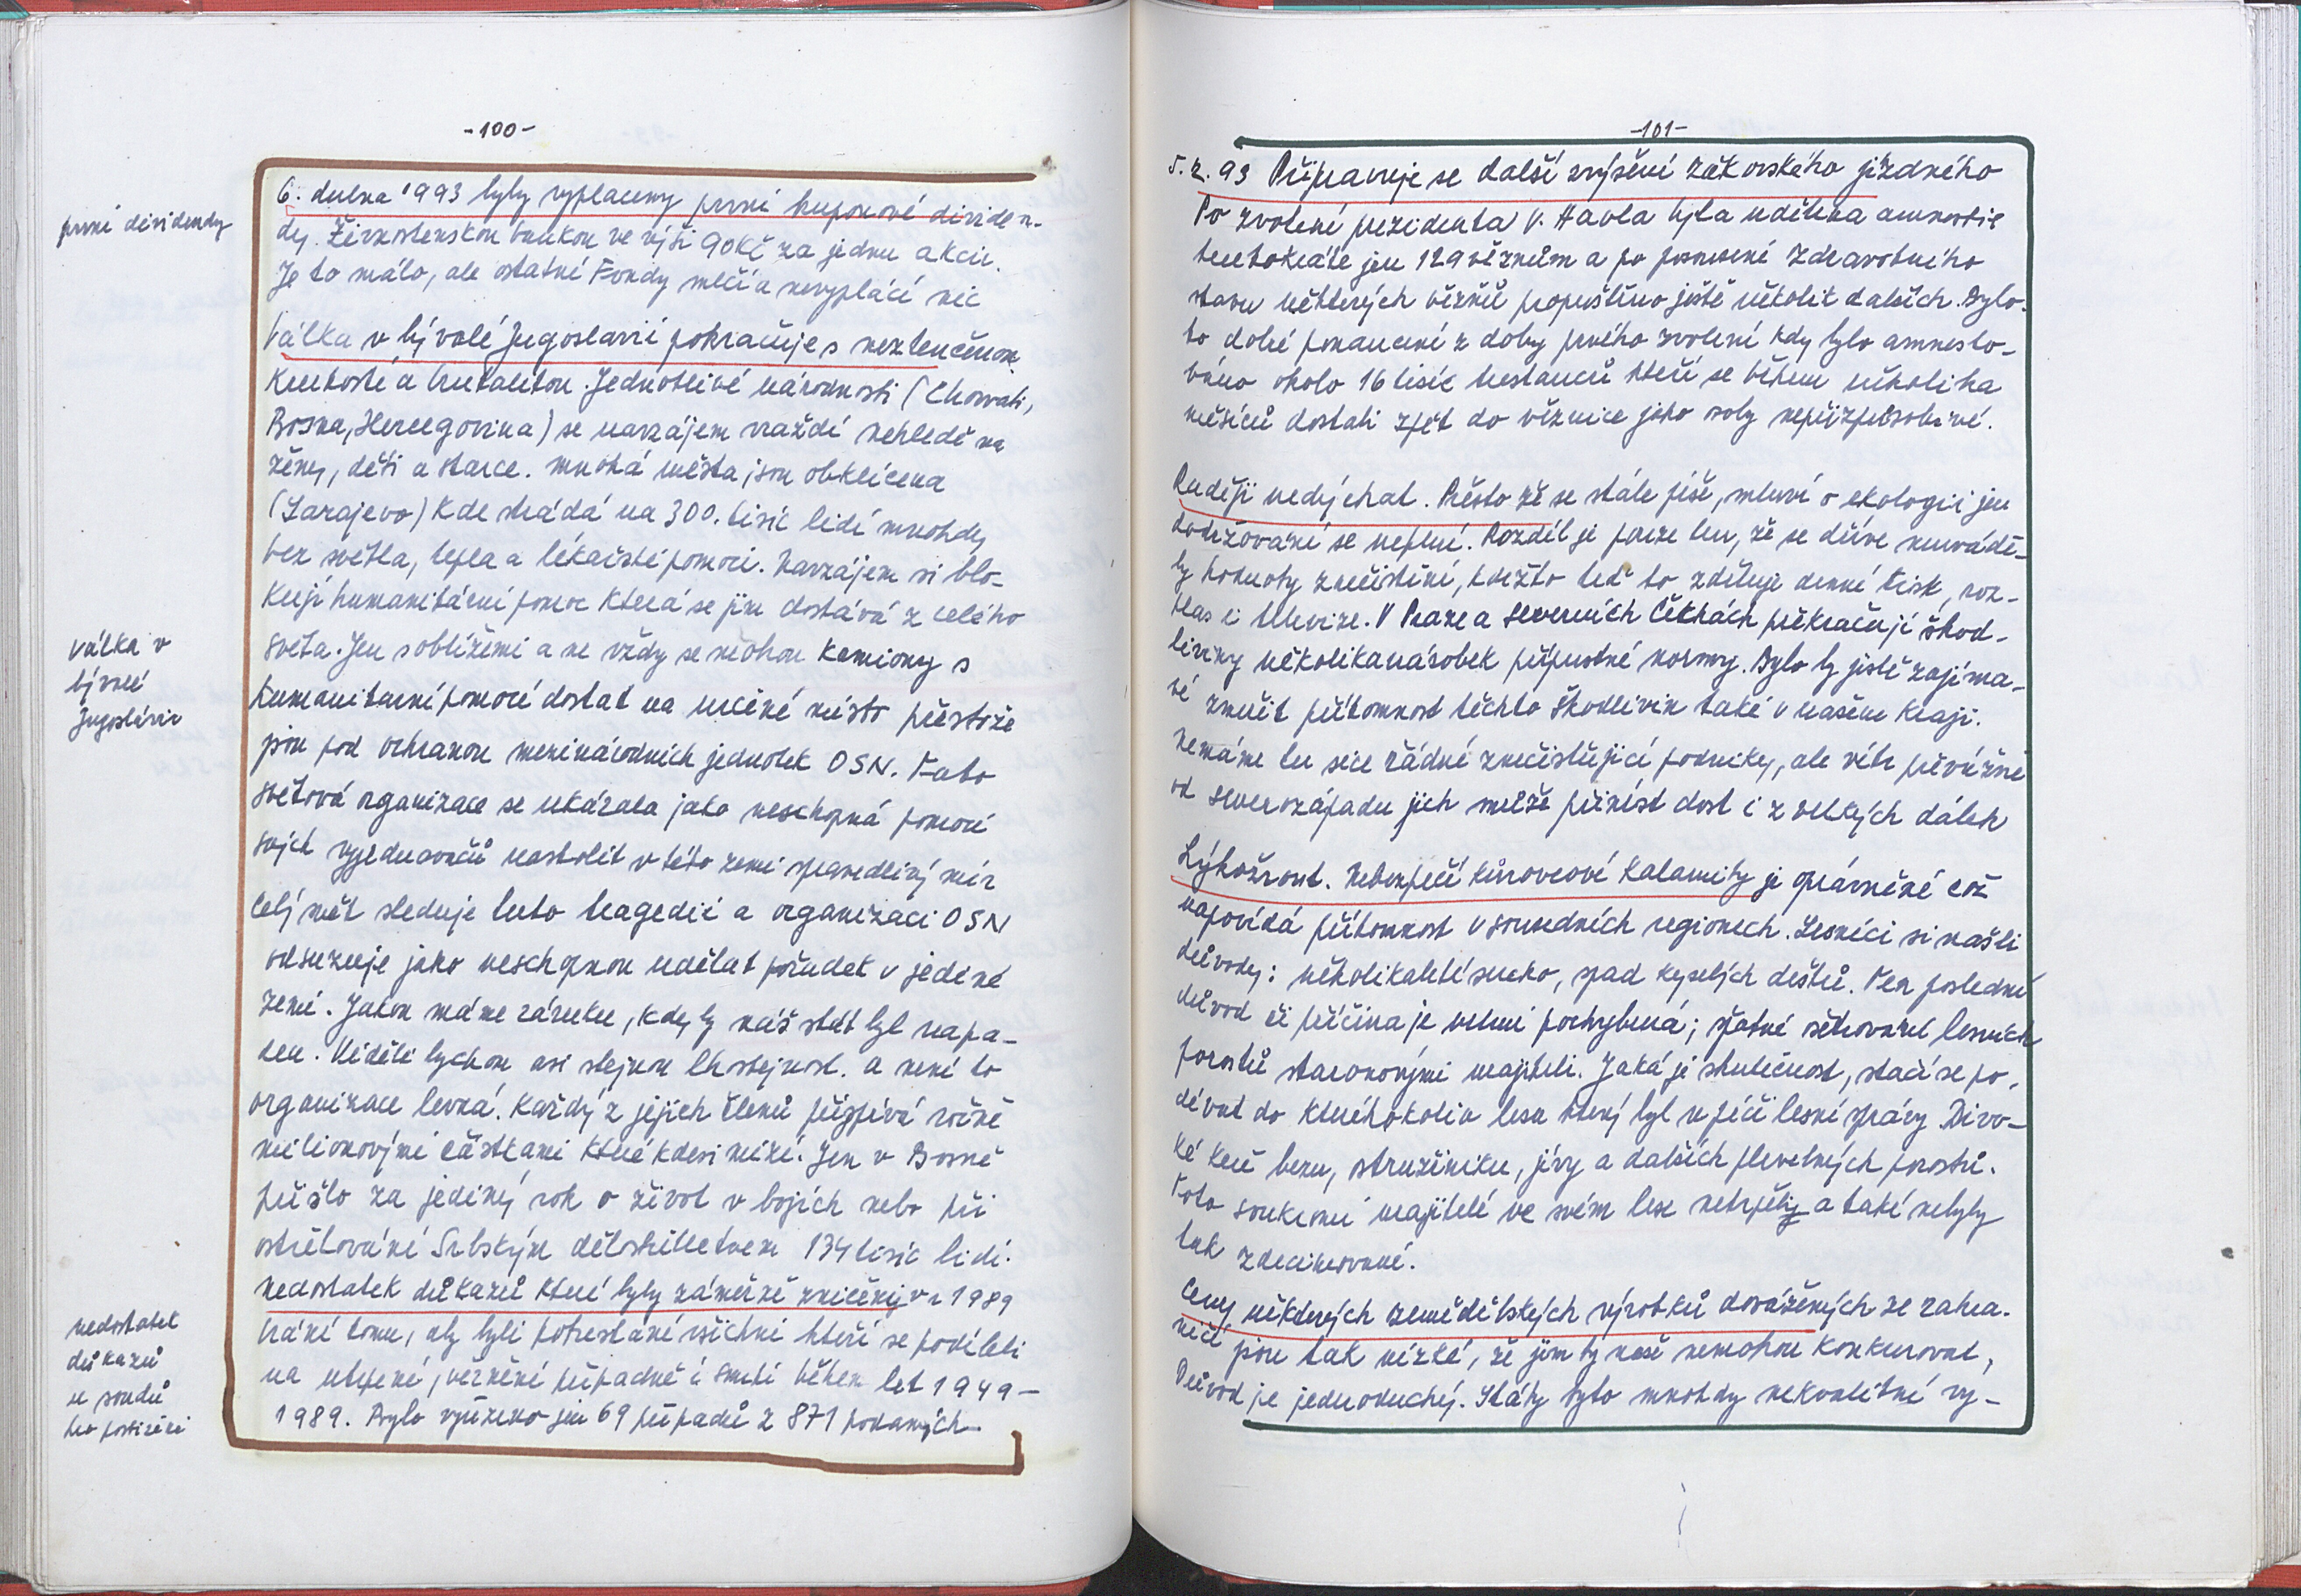 -100-
první dividendy
6. dubna 1993 byly vyplaceny první kuponové dividen-
dy. Živnostenskou bankou ve výši 90 Kč za jednu akcii.
Je to málo, ale ostatní Fondy mlčí a nevyplácí nic
Válka v bývalé Jugoslavii pokračuje s neztenčenou
krutostí a brutalitou. Jednotlivé národnosti (Chorvati,
Bosna, Hercegovina) se navzájem vraždí nehledě na
ženy, děti a starce. mnohá města jsou obklíčena
(Sarajevo) kde strádá na 300. tisíc lidí mnohdy
bez světla, tepla a lékařské pomoci. Navzájem si blo-
kují humanitární pomoc která se jim dostává z celého
světa. Jen s obtížemi a ne vždy se mohou kamiony s
humanitarní pomocí dostat na určené místo přestože
jsou pod ochranou mezinárodních jednotek OSN. Tato
světová organizace se ukázala jako neschopná pomocí
svých vyjednavačů nastolit v této zemi spravedlivý mír
Celý svět sleduje tuto tragedii a organizaci OSN
odsuzuje jako neschopnou udělat pořádek v jediné
zemi. Jakou máme záruku, kdy by náš stát byl napa-
den. Viděli bychom asi stejnou lhostejnost. a není to
organizace levná. Každý z jejich členů přispívá ročně
milionovými částkami které kdesi mizí. Jen v Bosně
přišlo za jediný rok o život v bojích nebo při
ostřelování Srbským dělostřelectvem 134 tisíc lidí.
válka v
bývalé
Jugoslávii
Nedostatek důkazů které byly záměrně zničeny v r 1989
brání tomu, aby byli potrestáni všichni kteří se podíleli
na utrpení, věznění případně i smrti během let 1949-
1989. Bylo vyřízeno jen 69 případů z 871 podaných
nedostatek
důkazů
u soudů
-101-
5.2.93 Připravuje se další zvýšení žákovského jízdného
Po zvolení prezidenta V. Havla byla udělena amnestie
tentokráte jen 129 vězňům a po posouzení zdravotního
stavu některých vězňů propuštěno ještě několik dalších. Bylo
to dobré ponaučení z doby prvého zvolení kdy bylo amnesto-
váno okolo 16 tisíc trestanců kteří se během několika
měsíců dostali zpět do věznice jako osoby nepřizpůsobivé.
Raději nedýchat. Přesto že se stále píše, mluví o ekologii jen
dodržování se neplní. Rozdíl je pouze ten, že se dříve neuvádě-
ly hodnoty znečistění, kdežto teď to zděluje denní tisk, roz-
hlas i televize. V Praze a severních Čechách překračují škod-
liviny několikanásobek přípustné normy. Bylo by jistě zajíma-
vé změřit přítomnost těchto škodlivin také v našem kraji.
Nemáme tu sice žádné znečistující podniky, ale vítr převážně
od severozápadu jich může přinést dost i z velkých dálek
Lýkožrout. Nebezpečí kůrovcové kalamity je oprávněné což
napovídá přítomnost v sousedních regionech. Lesníci si našli
důvody: několikaleté sucho, spad kyselých dešťů. Ten poslední
důvod či příčina je velmi pochybená; špatné ošetřování lesních
porostů staronovými majiteli. Jaká je skutečnost, stačí se po-
dívat do kteréhokoliv lesa který byl v péči lesní správy. Divo-
ké keře bezu, ostružiníku, jívy a dalších plevelných porostů.
Toto soukromí majitelé ve svém lese netrpěly a také nebyly
tak zdecimované.
Ceny některých zemědělských výrobků dovážených ze zahra-
ničí jsou tak nízké, že jim ty naše nemohou konkurovat,
Důvod je jednoduchý. Státy tyto mnohdy nekvalitní vý-